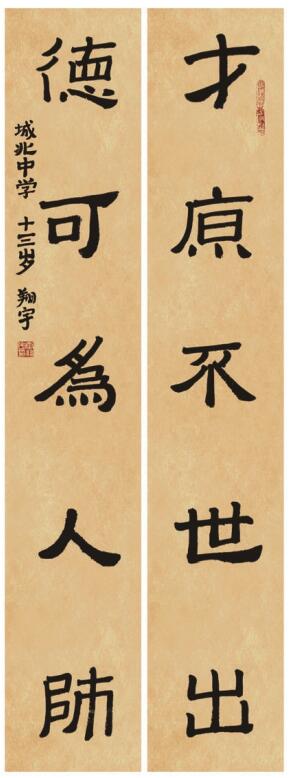 才原不世出
德可為人師
城北中学 十三岁 翔宇